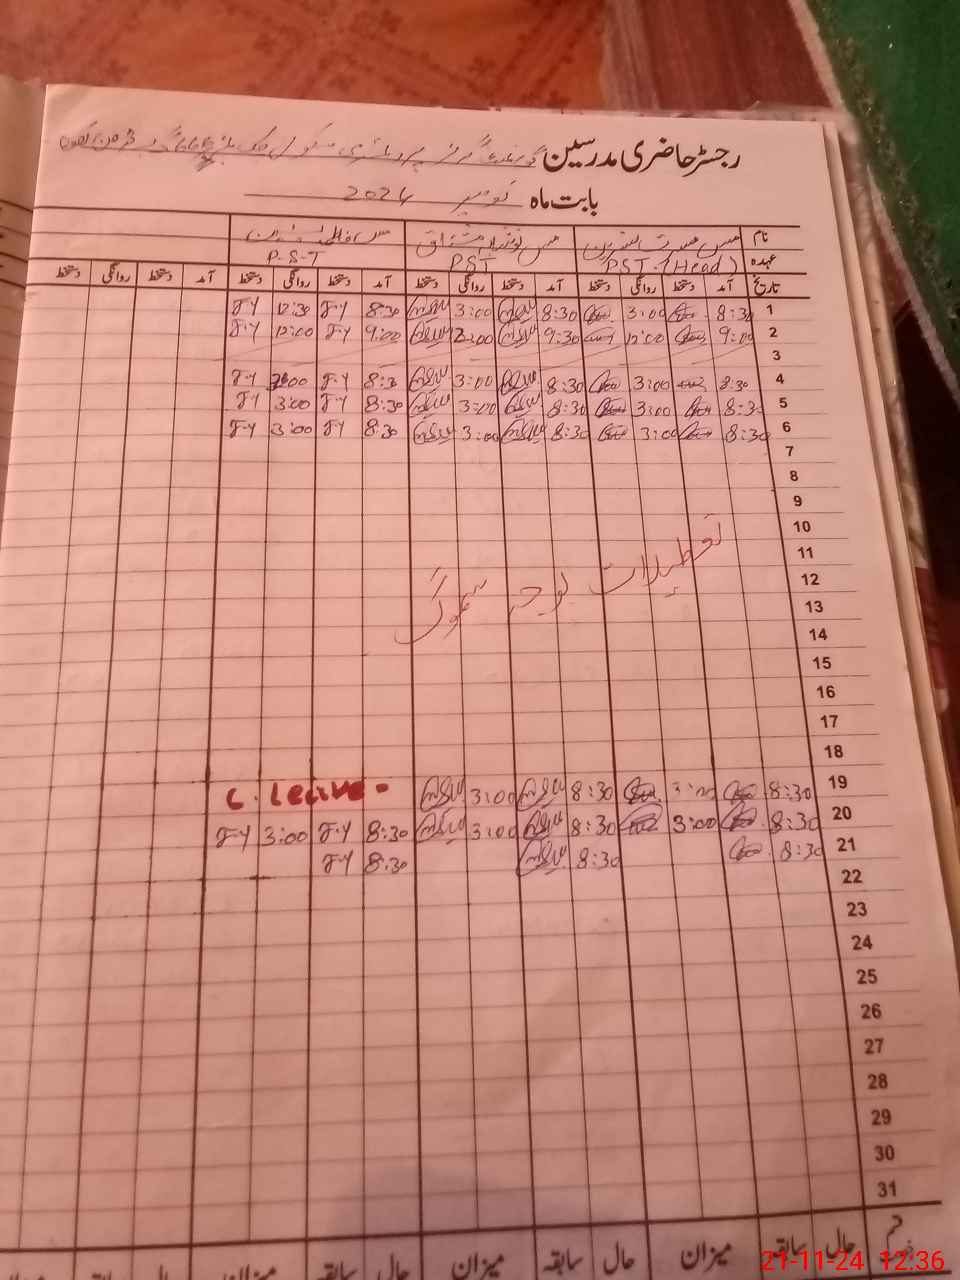 رجسٹر حاضری مدرسین گورنمنٹ گرلز پرائمری سکول چک
بابت ماہ نومبر 2024
نام مس مسرت نسرین مس نوشین مشتاق مس
عہدہ PST (Head) PST P.S.T
تاریخ آمد دستخط روانگی دستخط آمد دستخط روانگی دستخط آمد دستخط روانگی دستخط آمد دستخط روانگی دستخط
1 8:30 3:00 8:30 3:00 8:30 F.Y 12:30 F.Y
2 9:00 12:00 9:30 9:00 F.Y 12:00 F.Y
3
4 8:30 3:00 8:30 3:00 8:30 F.Y 3:00 F.Y
5 8:30 3:00 8:30 3:00 8:30 F.Y 3:00 F.Y
6 8:30 3:00 8:30 3:00 8:30 F.Y 3:00 F.Y
7
8
9
10
11
تعطیلات بوجہ سموگ
12
13
14
15
16
17
18
19 8:30 3:00 8:30 3:00 C. Leave -
20 8:30 3:00 8:30 3:00 8:30 F.Y 3:00 F.Y
21 8:30 8:30 8:30 F.Y
22
23
24
25
26
27
28
29
30
31
حال سابقہ میزان حال سابقہ میزان حال سابقہ میزان حال سابقہ
21-11-24 12:36